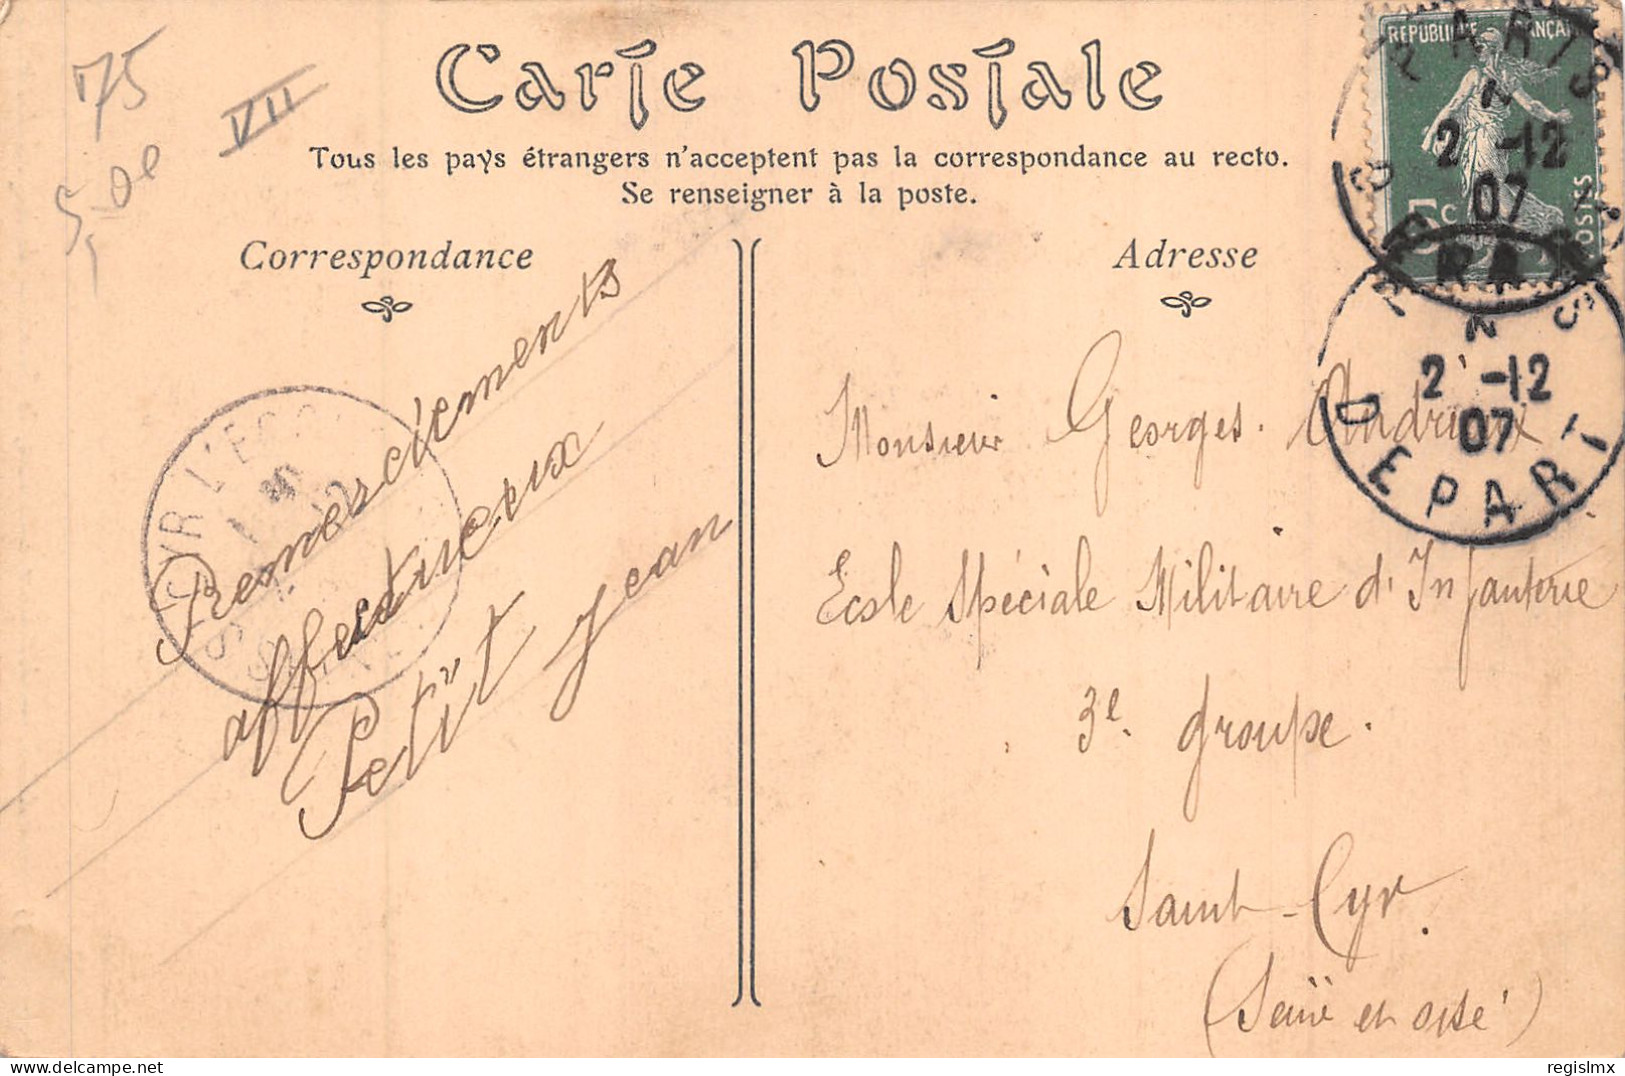 75
VII
5-00
Carte Postale
Tous les pays étrangers n'acceptent pas la correspondance au recto.
Se renseigner à la poste.
Correspondance
Adresse
REPUBLIQUE FRANÇAISE
5c
POSTES
PARIS
2 -12
07
2 -12
07
DEPART
ST CYR L'ECOLE
Remerciements
affectueux
Petit Jean
Monsieur Georges. Andrieux
Ecole Spéciale Militaire d'Infanterie
3e. groupe.
Saint-Cyr.
(Seine et oise)
regislmx